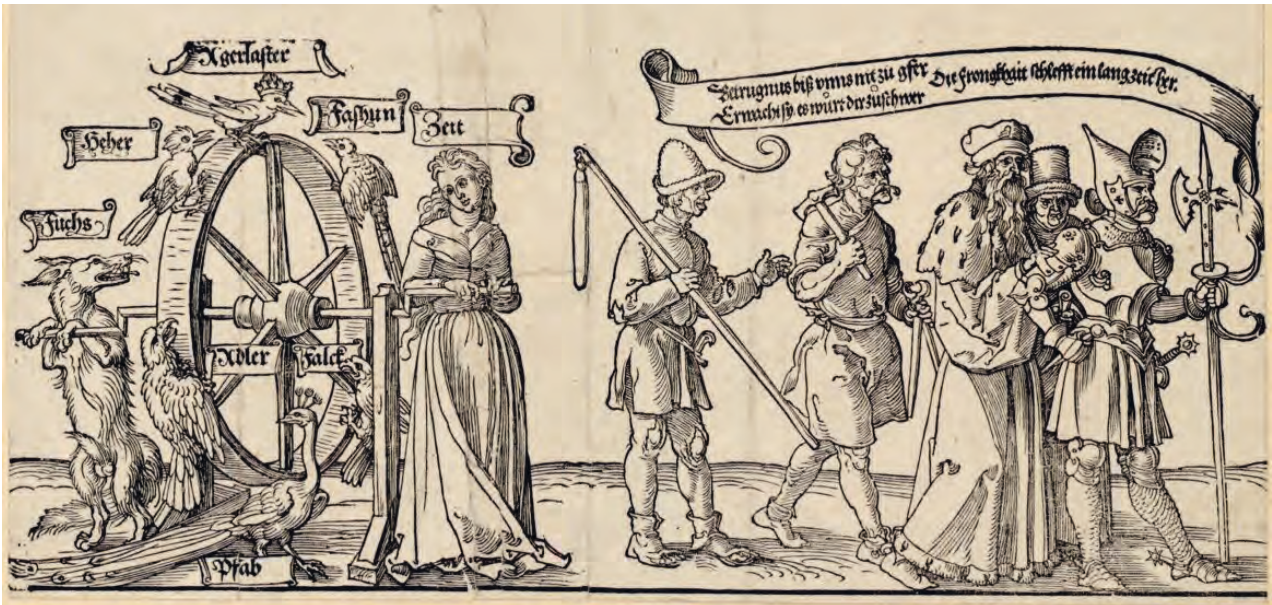 Agerlaster
Fashun
Zeit
Heher
Fuchs
Adler
Falck
Pfab
Betrugnus biß vnns nit zu gfer Die frongkhait schlefft ein lang zeit her.
Erwacht sy es würt dir zu schwer